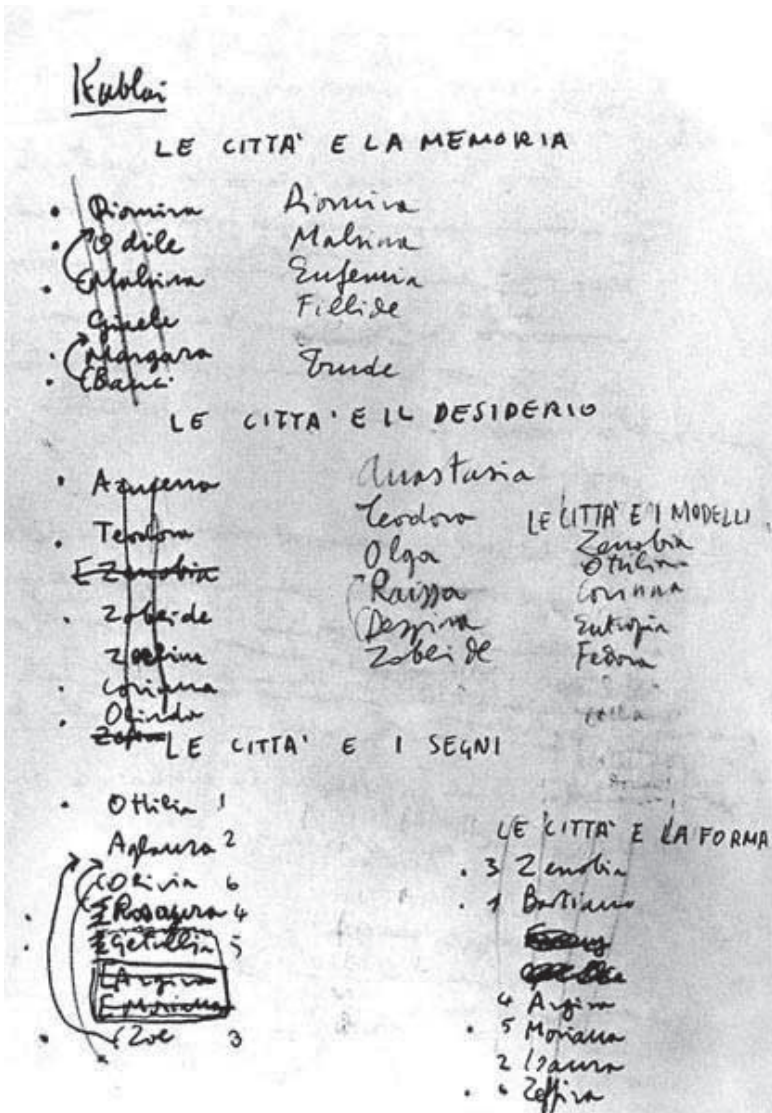 Kublai
LE CITTA' E LA MEMORIA
Diomira
Odile
Malsina
Gisele
Margara
Bauci
Diomira
Malsina
Eufemia
Fillide
Trude
LE CITTA' E IL DESIDERIO
Teodora
Zenobia
Zobeide
Olindo
Anastasia
Teodora
Olga
Raissa
Despina
Zobeide
LE CITTA' E I MODELLI
Zenobia
Ottilia
Corinna
Eutropia
Fedora
LE CITTA' E I SEGNI
Ottilia 1
Aglaura 2
Olivia 6
Rosaura 4
Getullia 5
Argira
Moriana
Zoe 3
LE CITTA' E LA FORMA
3 Zenobia
1
4 Argira
5 Moriana
2 Isaura
6 Zeffira